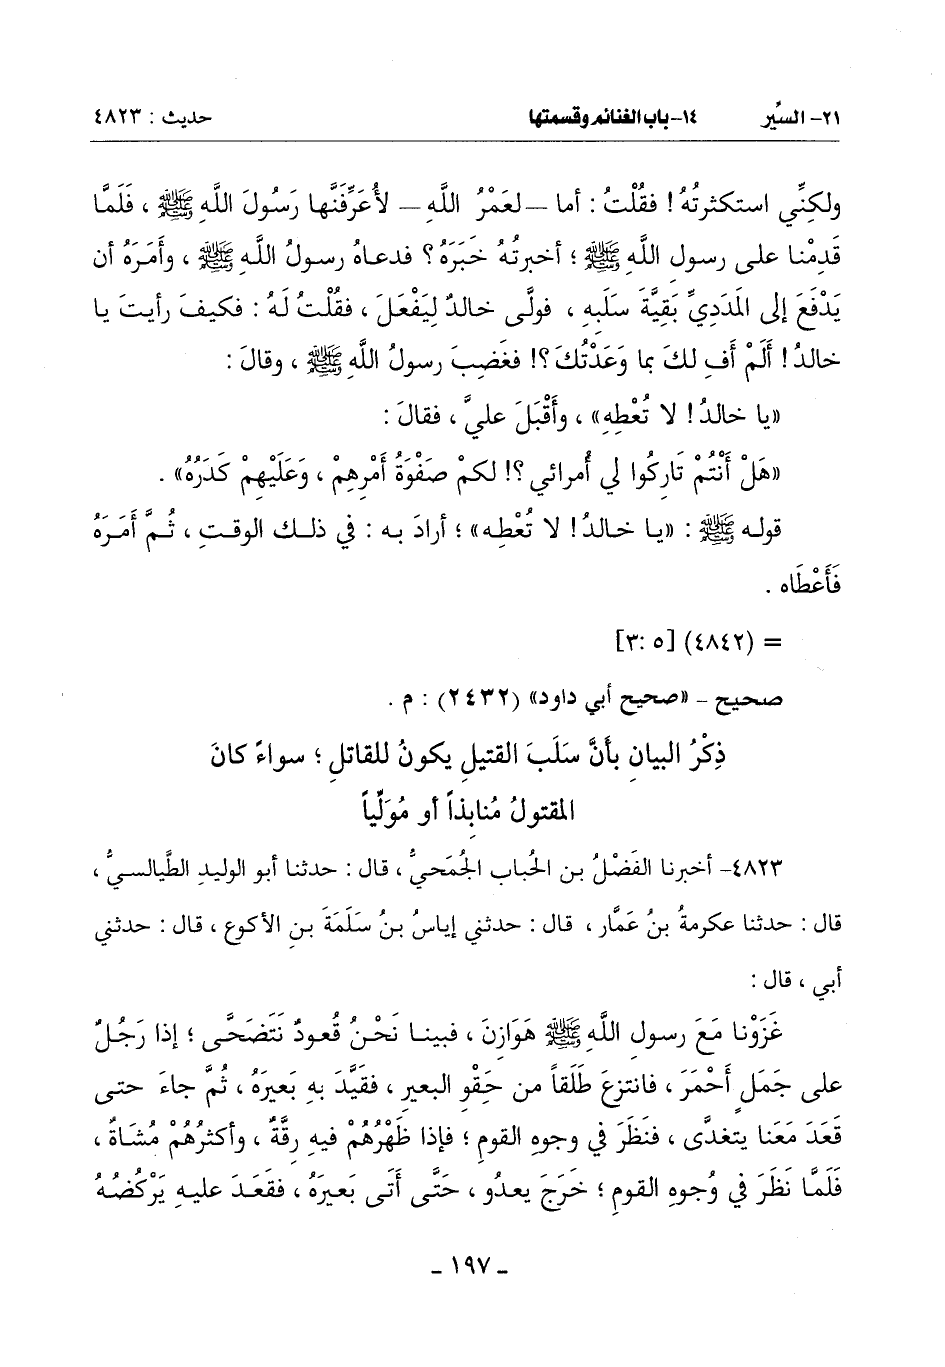 ٢١- السِّير ١٤-باب الغنائم وقسمتها حديث : ٤٨٢٣
ولكِنِّي استكثرتُهُ ! فقُلْتُ : أما – لعَمْرُ اللَّهِ – لأُعَرِّفَنَّها رَسُولَ اللَّهِ ﷺ ، فَلَمَّا
قَدِمْنا على رسول اللَّهِ ﷺ ؛ أخبرتُهُ خَبَرَهُ ؟ فدعاهُ رسولُ اللَّهِ ﷺ ، وأَمَرَهُ أن
يَدْفَعَ إلى المَدَدِيِّ بَقِيَّةَ سَلَبِهِ ، فولَّى خالدٌ لِيَفْعَلَ ، فقُلْتُ لَهُ : فكيفَ رأيتَ يا
خالدُ ! أَلَمْ أَفِ لكَ بما وَعَدْتُكَ ؟! فغَضِبَ رسولُ اللَّهِ ﷺ ، وقالَ :
«يا خالدُ ! لا تُعْطِهِ» ، وأَقْبَلَ عليَّ ، فقالَ :
«هَلْ أَنْتُمْ تَارِكُوا لي أُمرائي ؟! لكمْ صَفْوَةُ أَمْرِهِمْ ، وَعَلَيْهِمْ كَدَرُهُ» .
قوله ﷺ : «يا خالدُ ! لا تُعْطِه» ؛ أرادَ به : في ذلك الوقتِ ، ثُمَّ أَمَرَهُ
فَأَعْطَاه .
= (٤٨٤٢) [٥ :٣]
صحيح – «صحيح أبي داود» (٢٤٣٢) : م .
ذِكْرُ البيانِ بأَنَّ سَلَبَ القتيلِ يكونُ للقاتلِ ؛ سواءً كانَ
المقتولُ مُنابذاً أو مُوَلِّياً
٤٨٢٣- أخبرنا الفَضْلُ بن الحُباب الجُمَحيُّ ، قال : حدثنا أبو الوليدِ الطَّيالسيُّ ،
قال : حدثنا عكرمةُ بنُ عَمَّار ، قال : حدثني إياسُ بنُ سَلَمَةَ بنِ الأكوع ، قال : حدثني
أبي ، قال :
غَزَوْنا مَعَ رسول اللَّهِ ﷺ هَوَازِنَ ، فبينا نَحْنُ قُعودٌ نَتَضَحَّى ؛ إذا رَجُلٌ
على جَمَلٍ أَحْمَرَ ، فانتزعَ طَلَقاً من حَقِو البعيرِ ، فقَيَّدَ بِهِ بَعيرَهُ ، ثُمَّ جاءَ حتى
قعَدَ مَعَنا يتغدَّى ، فنَظَرَ في وجوهِ القومِ ؛ فإذا ظَهْرُهُمْ فيهِ رِقَّةٌ ، وأكثرُهُمْ مُشَاةٌ ،
فَلَمَّا نَظَرَ في وُجوهِ القومِ ؛ خَرَجَ يعدُو ، حَتَّى أَتى بَعيرَهُ ، فقَعَدَ عليهِ يَرْكُضُهُ
ـ ١٩٧ ـ